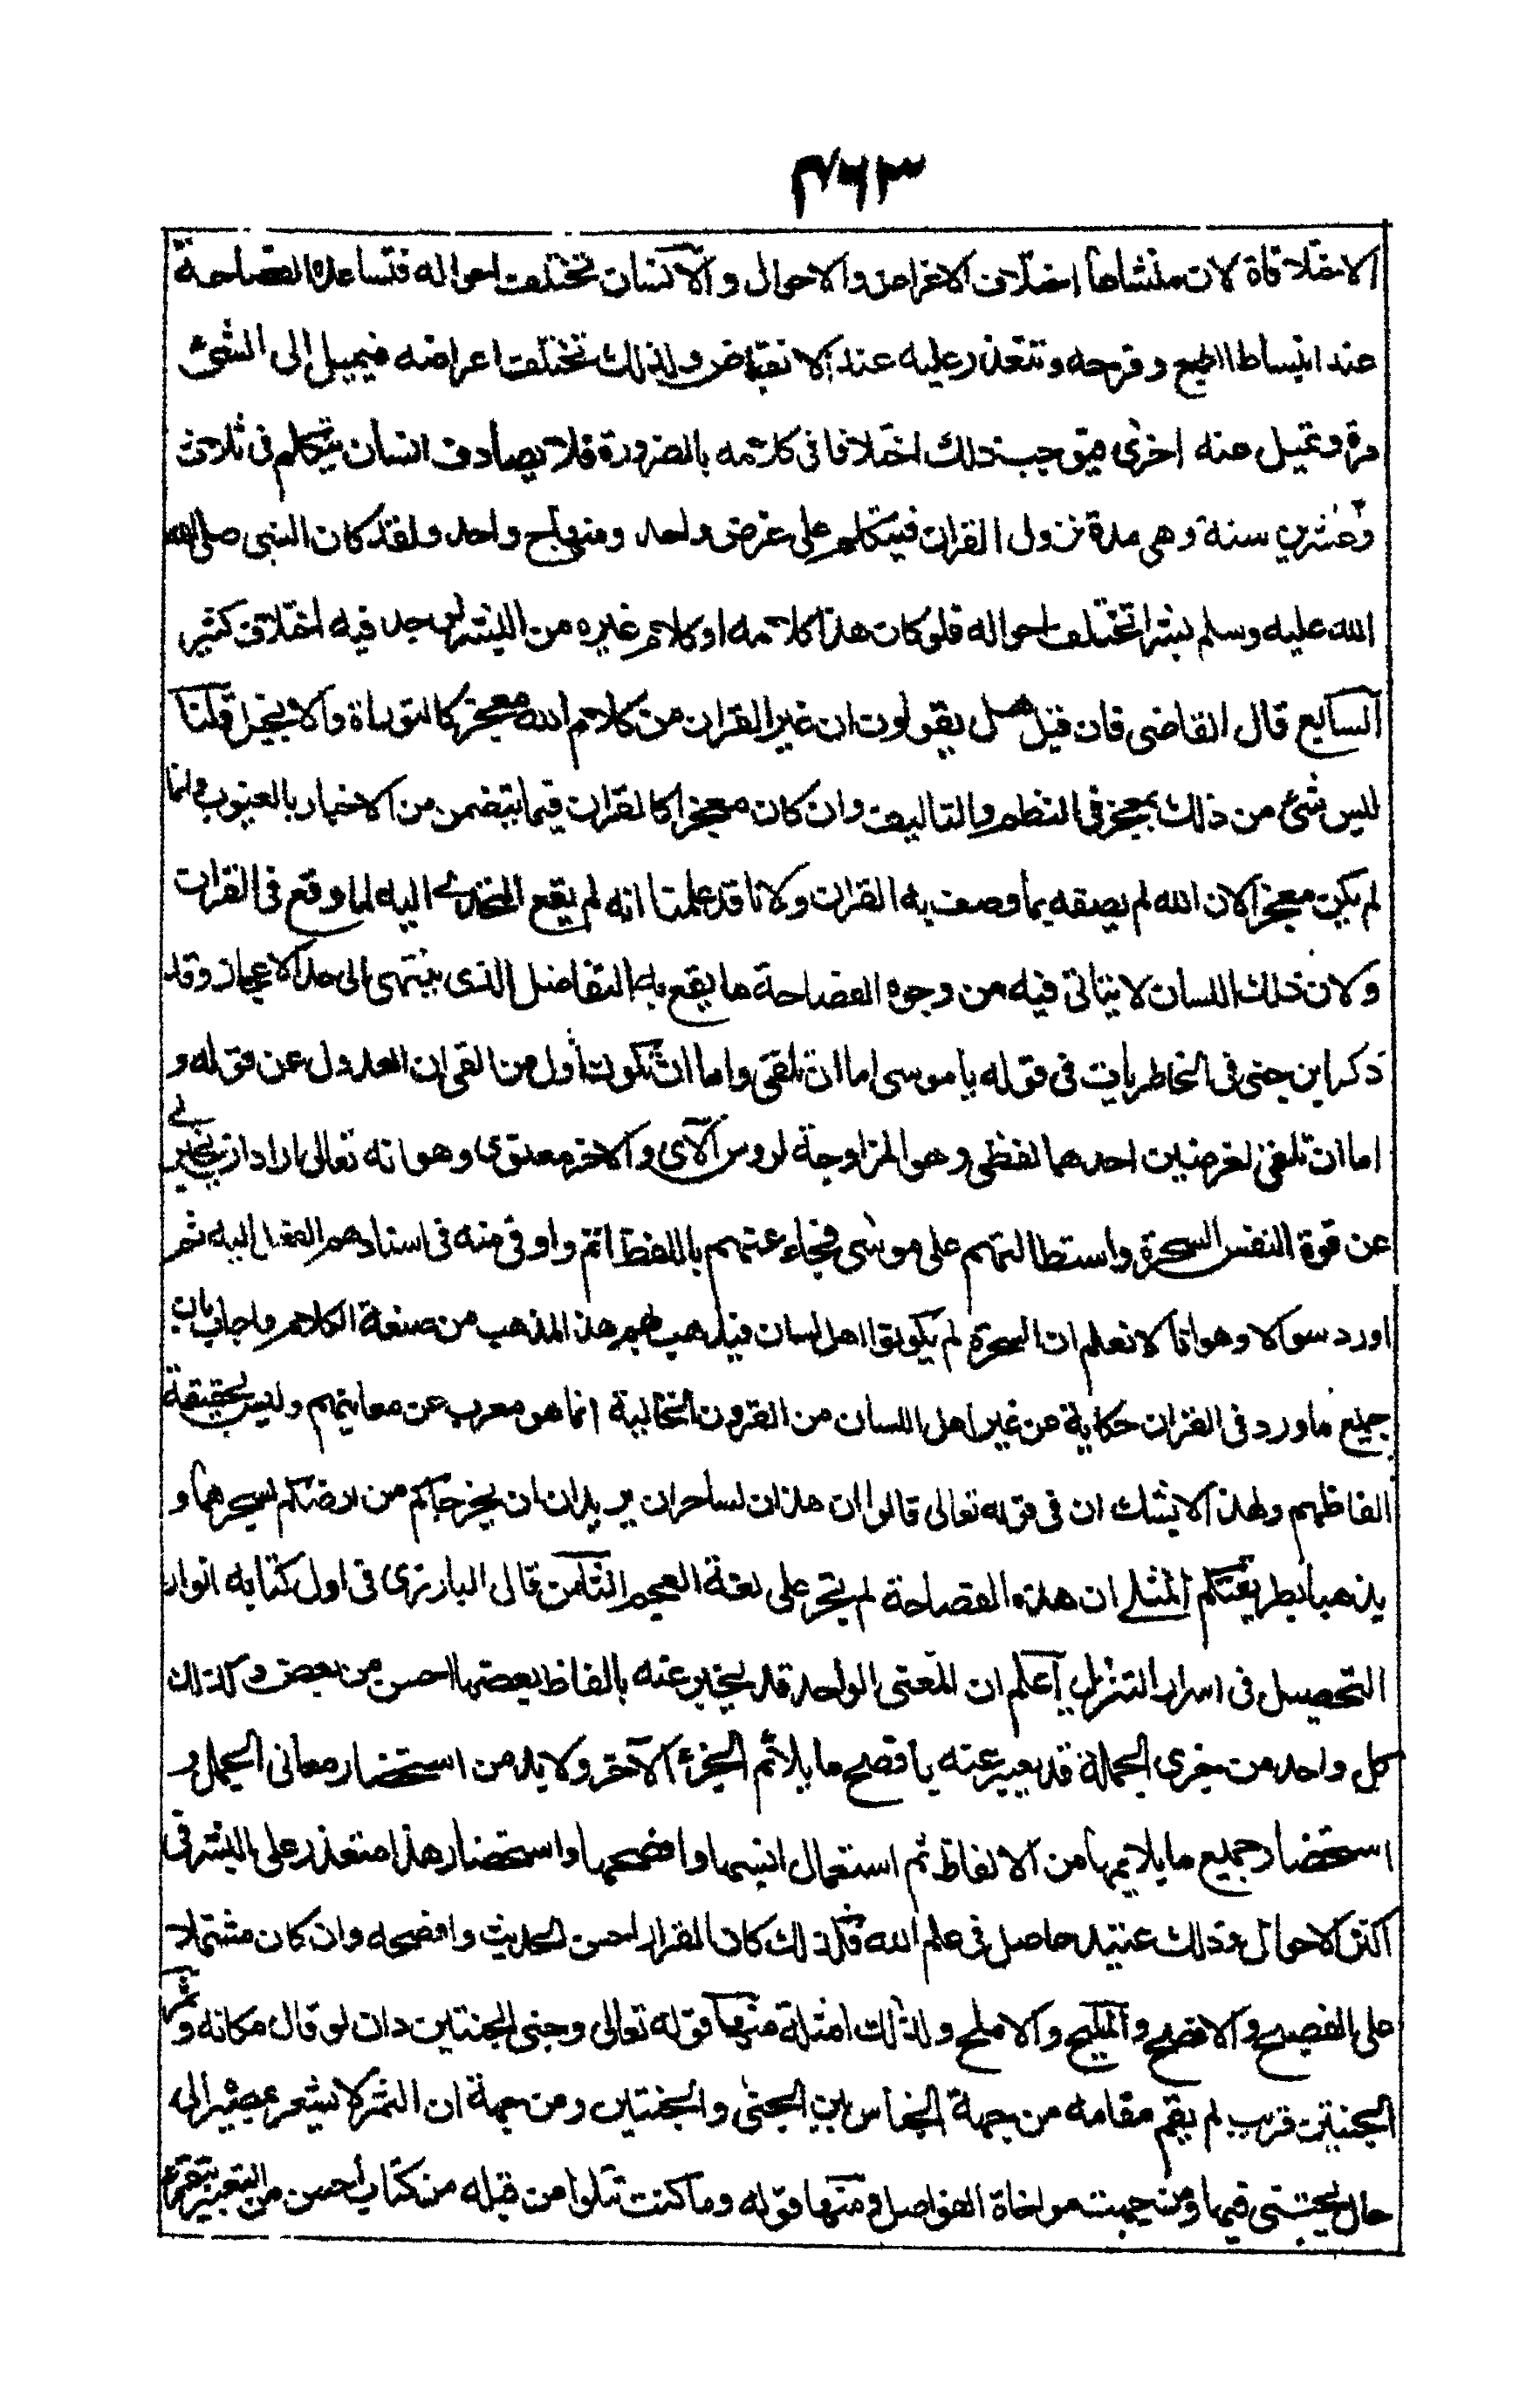 ٣٦٣
الاختلافاة لان منشاها اختلاف الاغراض والاحوال والانسان تختلف احواله فتساعده الفصاحة
عند انبساط الطبع وفرحه وتتعذر عليه عند الانقباض ولذلك تختلف اغراضه فيميل الى الشئ
مرة وتميل عنه اخرى فيوجب ذلك اختلافا فى كلامه بالضرورة فلا يصادف انسان يتكلم فى ثلاث
وعشرين سنة وهى مدة نزول القران فيتكلم على غرض واحد ومنهاج واحد ولقد كان النبى صلى الله
الله عليه وسلم بشرا تختلف احواله فلو كان هذا كلامه او كلام غيره من البشر لوجد فيه اختلاف كثير
السابع قال القاضى فان قيل هل يقولون ان غير القران من كلام الله معجز كالتوراة والانجيل قلنا
ليس شئ من ذلك بمعجز فى النظم والتاليف وان كان معجزا كالقران فيما يتضمن من الاخبار بالغيوب وانما
لم يكن معجزا لان الله لم يصفه بما وصف به القران ولانا قد علمنا انه لم يقع التحدى اليه لما وقع فى القران
ولان ذلك اللسان لا يتاتى فيه من وجوه الفصاحة ما يقع به التفاضل الذى ينتهى الى حد الاعجاز وقد
ذكر ابن جنى فى الخاطريات فى قوله يا موسى اما ان تلقى واما ان تكون اول من القى ان العدول عن قوله و
اما ان تلقى لغرضين احدهما لفظى وهو المزاوجة لروس الآى والاخر معنوى وهو انه تعالى اراد ان يخبر
عن قوة النفس السحرة واستطالتهم على موسى فجاء عنهم باللفظ اتم واوفى منه فى اسنادهم الفعل اليه ثم
اورد سوالا وهو انا لا نعلم ان السحرة لم يكونوا اهل لسان فيذهب بهم هذا المذهب من صنعة الكلام واجاب بان
جميع ما ورد فى القران حكاية عن غير اهل اللسان من القرون الخالية انما هو معرب عن معانيهم وليس بحقيقة
الفاظهم ولهذا لا يشك ان فى قوله تعالى قالوا ان هذان لساحران يريدان ان يخرجاكم من ارضكم بسحرهما و
يذهبا بطريقتكم المثلى ان هذه الفصاحة لم يجر على لغة العجم الثامن قال البارزى فى اول كتابه انوار
التحصيل فى اسرار التنزيل اعلم ان المعنى الواحد قد يخبر عنه بالفاظ بعضها احسن من بعض وكذلك
كل واحد من جزى الجملة قد يعبر عنه بافصح ما يلائم الجزء الآخر ولا بد من استحضار معانى الجمل و
استحضار جميع ما يلايمها من الالفاظ ثم استعمال انسبها وافصحها واستحضار هذا متعذر على البشر فى
اكثر الاحوال وذلك عتيد حاصل فى علم الله فلذلك كان القران احسن الحديث وافصحه وان كان مشتملا
على الفصيح والافصح والمليح والاملح ولذلك امثلة منها قوله تعالى وجنى الجنتين دان لو قال مكانه وثمر
الجنتين قريب لم يقم مقامه من جهة الجناس بين الجنى والجنتين ومن جهة ان الثمر لا يشعر بمصيره الى
حال يجتنى فيها ومن جهت مواخاة الفواصل ومنها قوله وما كنت تتلوا من قبله من كتاب احسن من التعبير بتقرء